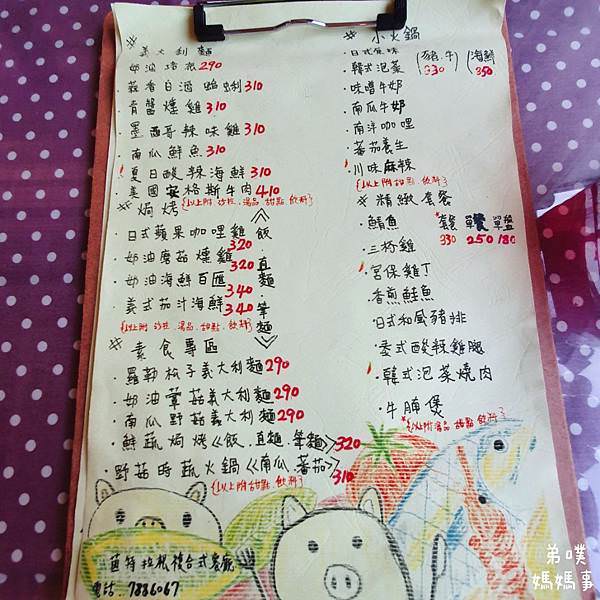 ※ 義大利麵
・奶油培根 290
・蒜香白酒蛤蜊 310
・青醬燻雞 310
・墨西哥辣味雞 310
・南瓜鮮魚 310
・夏日酸辣海鮮 310
・美國安格斯牛肉 410
{以上附 沙拉.湯品.甜點.飲料}
※ 焗烤 《飯.直麵.筆麵》
・日式蘋果咖哩雞 320
・奶油蘑菇燻雞 320
・奶油海鮮百匯 340
・義式茄汁海鮮 340
{以上附 沙拉.湯品.甜點.飲料}
※ 素食專區
・羅勒松子義大利麵 290
・奶油蕈菇義大利麵 290
・南瓜野菇義大利麵 290
・鮮蔬焗烤《飯.直麵.筆麵》 320
・野菇時蔬火鍋《南瓜.蕃茄》 310
{以上附甜點.飲料}
※ 小火鍋 (豬.牛) (海鮮)
330 350
・日式原味
・韓式泡菜
・味噌牛奶
・南瓜牛奶
・南洋咖哩
・蕃茄養生
・川味麻辣
{以上附甜點.飲料}
※ 精緻套餐
套餐 單盤
330 250 180
・鯖魚
・三杯雞
・宮保雞丁
・香煎鮭魚
・日式和風豬排
・泰式酸辣雞腿
・韓式泡菜燒肉
・牛腩煲
*{以上附湯品.甜點.飲料}
芭特拉根複合式餐廳
電話:7886067
弟噗
媽媽事